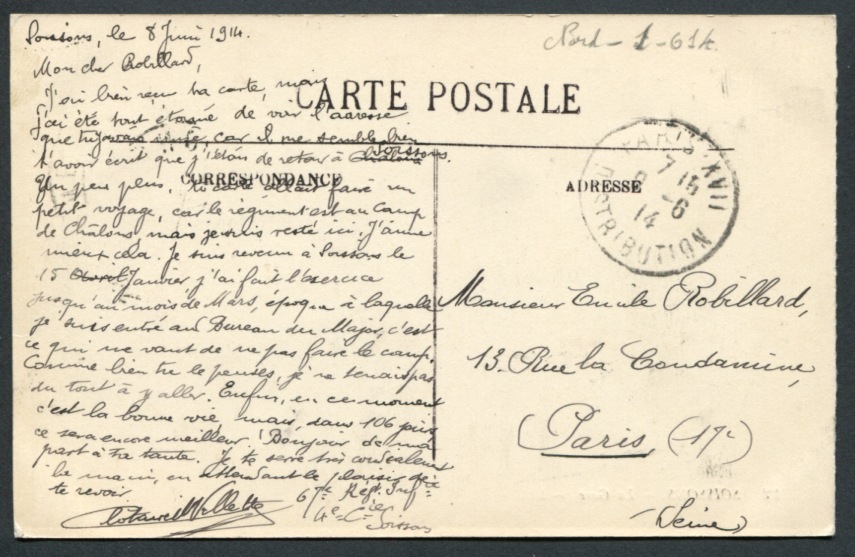 Soissons, le 8 Juin 1914.
Nord-1-614
Mon cher Robillard,
J'ai bien reçu ta carte, mais
CARTE POSTALE
j'ai été tout étonné de voir l'adresse
que tu avais mise, car il me semble bien
t'avoir écrit que j'étais de retour à Châlons Soissons.
CORRESPONDANCE
Un peu plus, ta carte allait faire un
petit voyage, car le régiment est au Camp
de Châlons, mais je suis resté ici. J'aime
mieux cela. Je suis revenu à Soissons le
15 Avril Janvier j'ai fait l'exercice
jusqu'au mois de Mars, époque à laquelle
je suis entré au Bureau du Major, c'est
ce qui me vaut de ne pas faire le camp.
Comme bien tu le penses, je ne tenais pas
du tout à y aller. Enfin, en ce moment
c'est la bonne vie, mais, dans 106 puis
ce sera encore meilleur! Bonjour de ma
part à ta tante. Je te serre très cordialement
la main, en attendant le plaisir de
te revoir.
Willette
67e Régt Infie
4e Cie
Soissons
ADRESSE
PARIS XVII
7 15
8 -6
14
DISTRIBUTION
Monsieur Emile Robillard,
13. Rue la Condamine,
Paris, (17e)
(Seine)